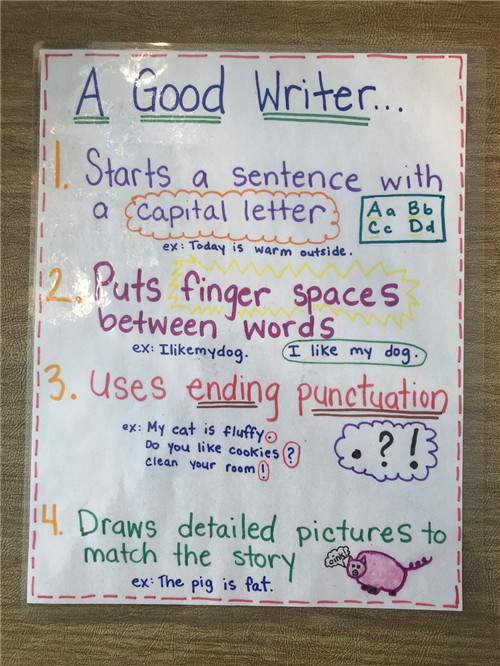 A Good Writer...
1. Starts a sentence with
a capital letter
Aa Bb
Cc Dd
ex: Today is warm outside.
2. Puts finger spaces
between words
ex: Ilikemydog. I like my dog.
3. uses ending punctuation
ex: My cat is fluffy.
Do you like cookies?
clean your room!
. ? !
4. Draws detailed pictures to
match the story
oink!
ex: The pig is fat.